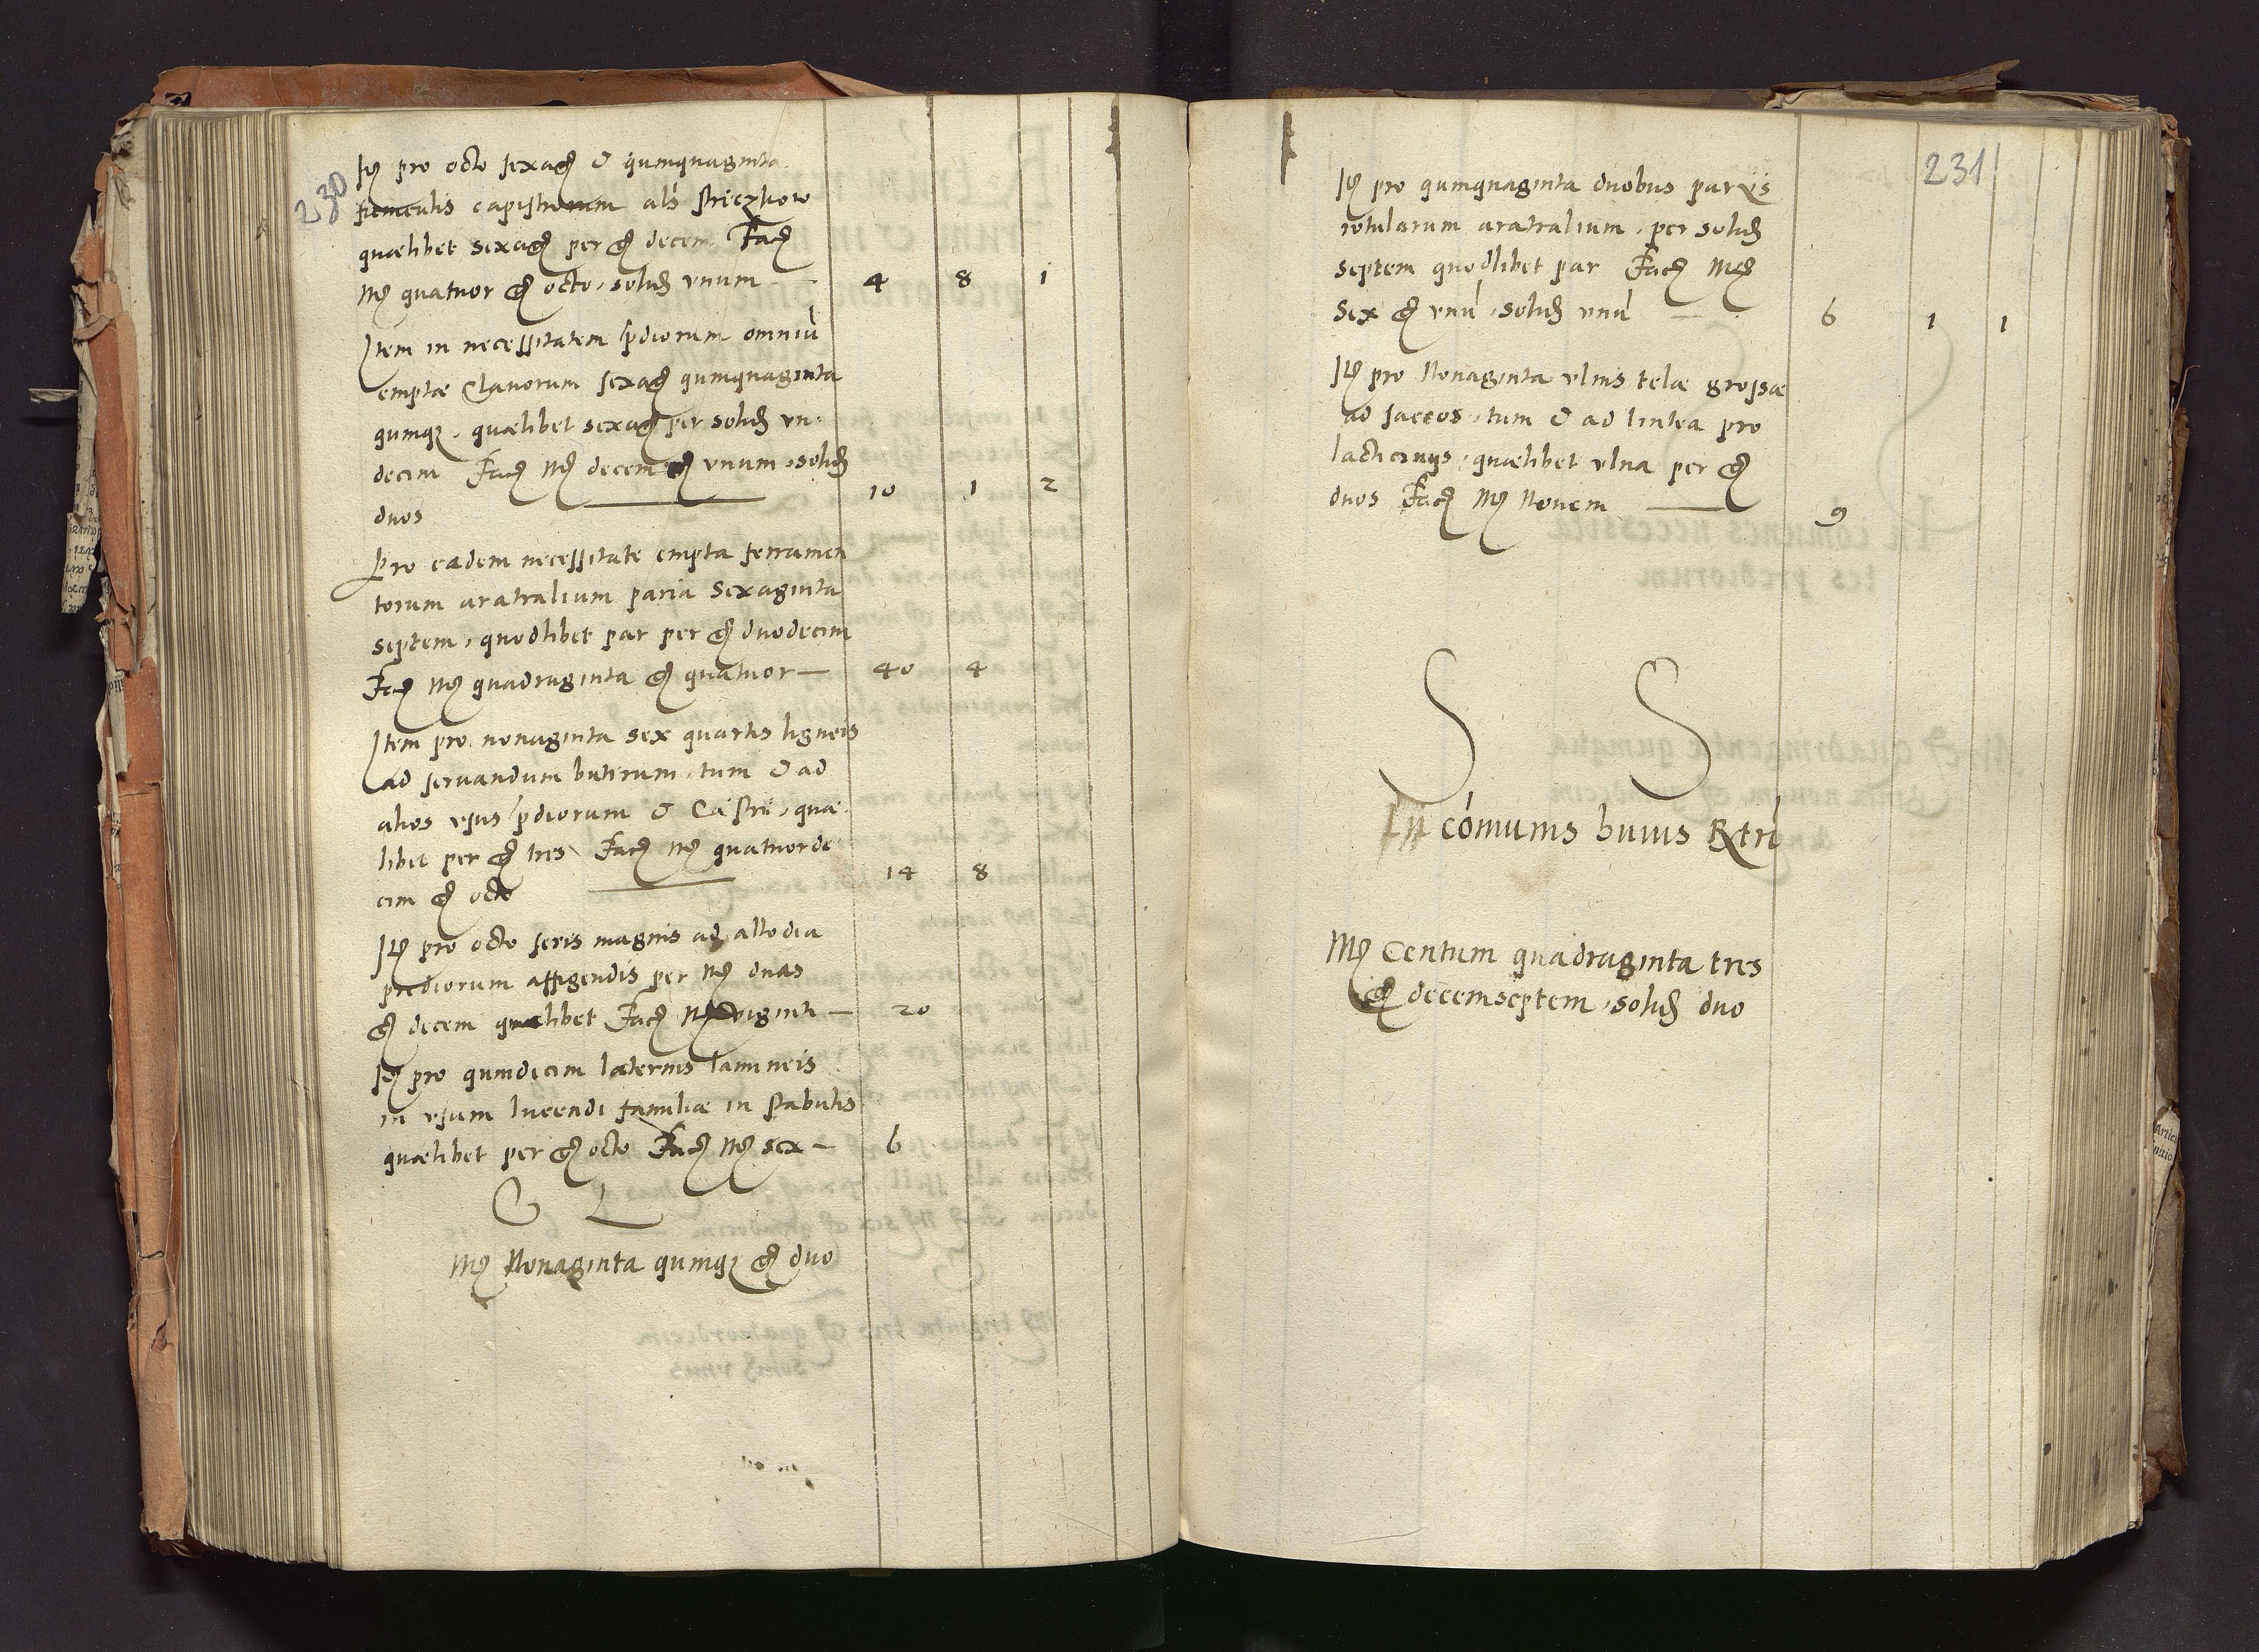 230
Itē pro octo sexagē & quinquaginta
funiculis capistrorum als striczkow
quælibet sexagē per gr decem Facē
Mē quatuor gr octo, solidē vnum — 4 8 1
Item in necessitatem prdiorum omniū
emptæ Clauorum sexagē quinquaginta
quinqȝ, quælibet sexagē per solidē vn
decim Facē Mē decem gr vnum, solidē
duos — 10 1 2
Pro eadem necessitate empta ferramen
torum aratralium paria Sexaginta
septem, quodlibet par per gr duodecim
Facē Mē quadraginta gr quatuor — 40 4
Item pro nonaginta sex quartis ligneis
ad seruandum butirum, tum & ad
alios vsus prdiorum & Castri, quæ
libet per gr tres Facē Mē quatuorde
cim gr octo — 14 8
Itē pro octo seris magnis ad allodia
prediorum affigendis per Mē duas
gr decem quælibet Facē Mē viginti — 20
Itē pro quindicim laternis lamineis
in vsum lucendi familiæ in stabulis
quælibet per gr octo Facē Mē sex — 6
C L
Mē Nonaginta quinqȝ gr duo
231
Itē pro quinquaginta duobus paribus
rotularum aratralium, per solidē
septem quodlibet par Facē Mē
Sex gr vnū, solidē vnū — 6 1 1
Itē pro Nonaginta vlnis telæ grossæ
ad saccos, tum & ad lintea pro
lacticinijs, quælibet vlna per gr
duos Facē Mē Nouem — 9
S S
In cōmunis huius Rtri
Mē Centum quadraginta tres
gr decemseptem, solidē duo